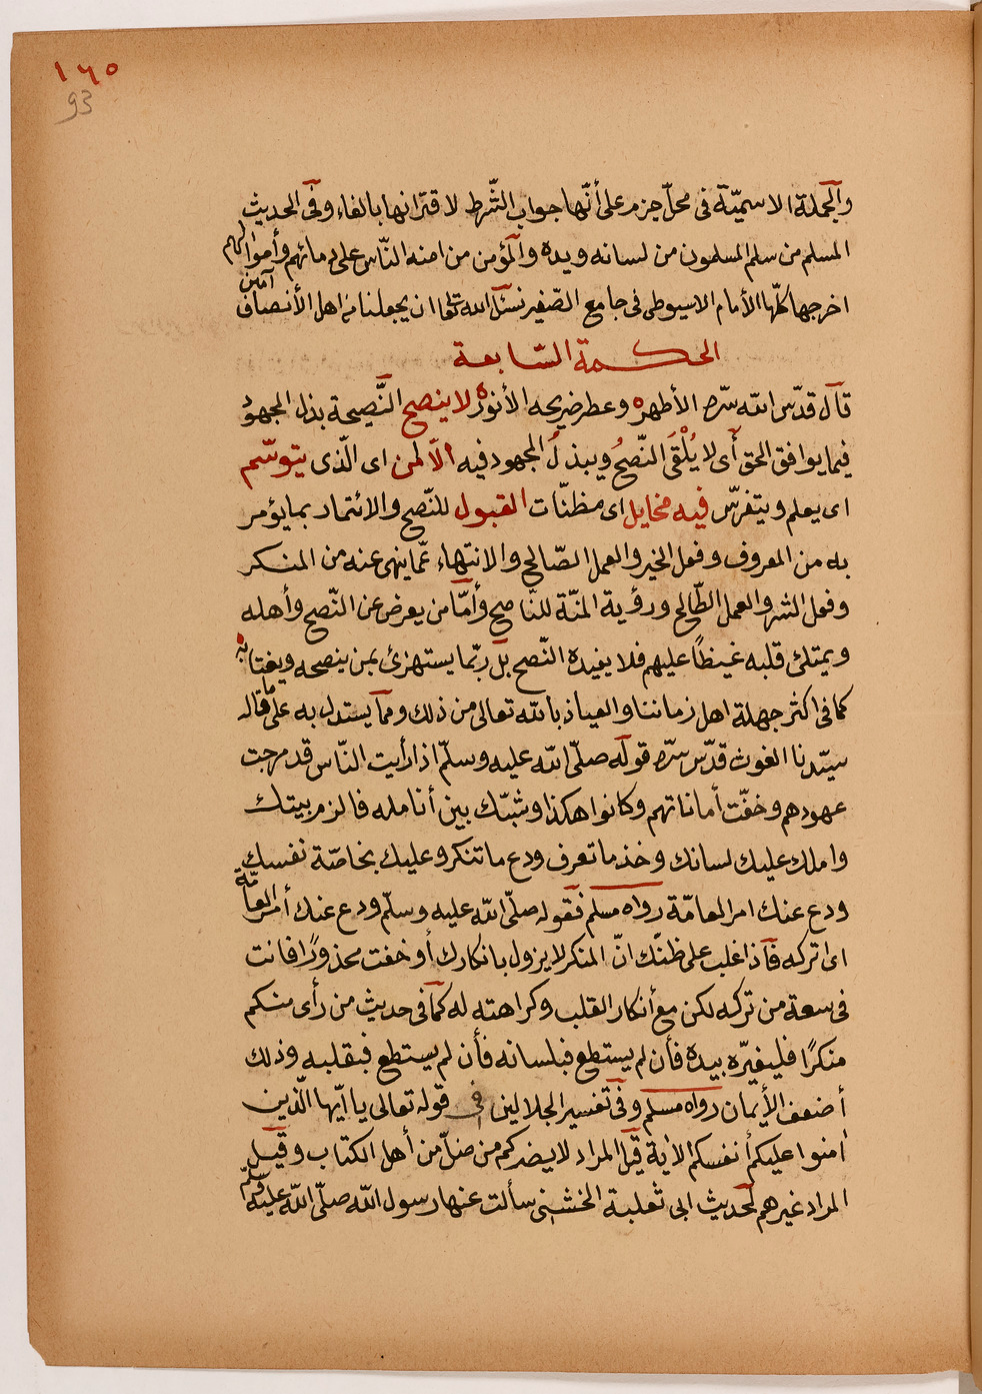 ١٦٥
93
والجملة الاسميّة فى محلّ جزم على أنّها جواب الشّرط لاقترانها بالفاء وفى الحديث
المسلم من سلم المسلمون من لسانه ويده والمؤمن من امنه النّاس على دمائهم وأموالهم
اخرجها كلّها الأمام الاسيوطى فى جامع الصّغير نسئل الله تعا ان يجعلنا من اهل الأنصاف آمين
الحكمة السّابعة
قال قدّس الله سرّه الأطهره وعطر ضريحه الأنوره لا ينصح النّصيحة بذل المجهود
فيما يوافق الحق أى لا يُلْقَى النّصحُ ويبذلُ المجهود فيه الّا لمن اى الّذى يتوسّم
اى يعلم ويتفرّس فيه مخايل اى مظنّات القبول للنّصح والائتماد بما يؤمر
به من المعروف وفعل الخير والعمل الصّالح والانتهاء عمّا ينهى عنه من المنكر
وفعل الشر والعمل الطّالح ورؤية المنّة للنّاصح وأمّا من يعرض عن النّصح وأهله
ويمتلئ قلبه غيظاً عليهم فلا يفيده النّصح بل ربّما يستهزئ بمن ينصحه ويغتابه
كما فى اكثر جهلة اهل زماننا والعياذ بالله تعالى من ذلك وممّا يستدل به على ما قاله
سيّدنا الغوث قدّس سرّه قوله صلّى الله عليه وسلّم اذا رأيت النّاس قد مرجت
عهودهم وخفّت أماناتهم وكانوا هكذا وشبّك بين أنامله فالزم بيتك
واملك عليك لسانك وخذ ما تعرف ودع ما تنكر وعليك بخاصّة نفسك
ودع عنك امر العامّة رواه مسلم فقوله صلّى الله عليه وسلّم ودع عنك أمر العامّة
اى اتركه فأذا غلب على ظنّك انّ المنكر لا يزول بانكارك أو خفت محذورًا فانت
فى سعة من تركه لكن مع أنكار القلب وكراهته له كما فى حديث من رأى منكم
منكرًا فليغيّره بيده فأن لم يستطع فبلسانه فأن لم يستطع فبقلبه وذلك
أضعف الأيمان رواه مسلم وفى تفسير الجلالين فى قوله تعالى يا ايّها الّذين
امنوا عليكم أنفسكم الاية قيل المراد لا يضركم من ضلّ من أهل الكتاب وقيل
المراد غيرهم لحديث ابى ثعلبة الخشنى سألت عنها رسول الله صلّى الله عليه وسلّم